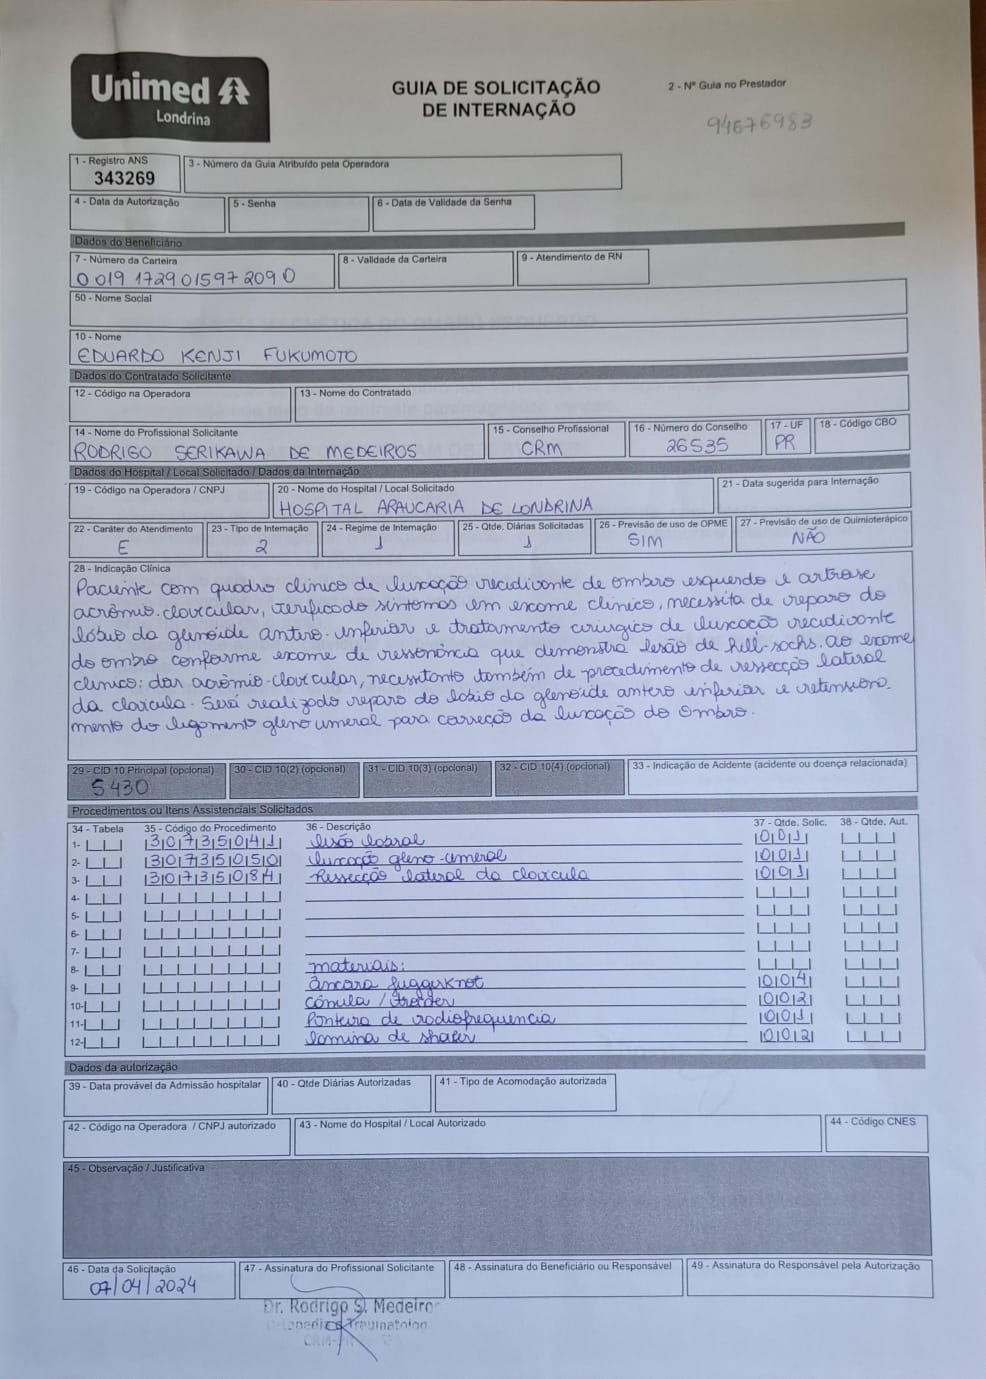 Unimed
Londrina
GUIA DE SOLICITAÇÃO
DE INTERNAÇÃO
2 - Nº Guia no Prestador
94676983
1 - Registro ANS
343269
3 - Número da Guia Atribuído pela Operadora
4 - Data da Autorização
5 - Senha
6 - Data de Validade da Senha
Dados do Beneficiário
7 - Número da Carteira
0 019 172901597 209 0
8 - Validade da Carteira
9 - Atendimento de RN
50 - Nome Social
10 - Nome
EDUARDO KENJI FUKUMOTO
Dados do Contratado Solicitante
12 - Código na Operadora
13 - Nome do Contratado
14 - Nome do Profissional Solicitante
RODRIGO SERIKAWA DE MEDEIROS
15 - Conselho Profissional
CRM
16 - Número do Conselho
26535
17 - UF
PR
18 - Código CBO
Dados do Hospital / Local Solicitado / Dados da Internação
19 - Código na Operadora / CNPJ
20 - Nome do Hospital / Local Solicitado
HOSPITAL ARAUCARIA DE LONDRINA
21 - Data sugerida para Internação
22 - Caráter do Atendimento
E
23 - Tipo de Internação
2
24 - Regime de Internação
1
25 - Qtde. Diárias Solicitadas
1
26 - Previsão de uso de OPME
SIM
27 - Previsão de uso de Quimioterápico
NÃO
28 - Indicação Clínica
Paciente com quadro clinico de luxação recidivante de ombro esquerdo e artrose
acrômio-clavicular, verificado sintomas em exame clinico, necessita de reparo do
lábio da glenoide antero-inferior e tratamento cirurgico de luxação recidivante
do ombro conforme exame de ressonância que demonstra lesão de hill-sachs. ao exame
clinico: dor acrômio-clavicular, necessitanto também de procedimento de ressecção lateral
da clavicula. Será realizado reparo do lábio da glenoide antero inferior e retensiona-
mento do ligamento gleno umeral para correção da luxação do ombro.
29 - CID 10 Principal (opcional)
S430
30 - CID 10(2) (opcional)
31 - CID 10(3) (opcional)
32 - CID 10(4) (opcional)
33 - Indicação de Acidente (acidente ou doença relacionada)
Procedimentos ou Itens Assistenciais Solicitados
34 - Tabela
35 - Código do Procedimento
36 - Descrição
37 - Qtde. Solic.
38 - Qtde. Aut.
1- 30735041 lesão labral 001
2- 30735050 luxação gleno-umeral 001
3- 30735084 Ressecção lateral da clavicula 001
4-
5-
6-
7-
8- materiais:
9- âncora juggerknot 004
10- cânula / 002
11- Ponteira de radiofrequencia 001
12- lamina de shaver 002
Dados da autorização
39 - Data provável da Admissão hospitalar
40 - Qtde Diárias Autorizadas
41 - Tipo de Acomodação autorizada
42 - Código na Operadora / CNPJ autorizado
43 - Nome do Hospital / Local Autorizado
44 - Código CNES
45 - Observação / Justificativa
46 - Data da Solicitação
07/04/2024
47 - Assinatura do Profissional Solicitante
48 - Assinatura do Beneficiário ou Responsável
49 - Assinatura do Responsável pela Autorização
Dr. Rodrigo S. Medeiro